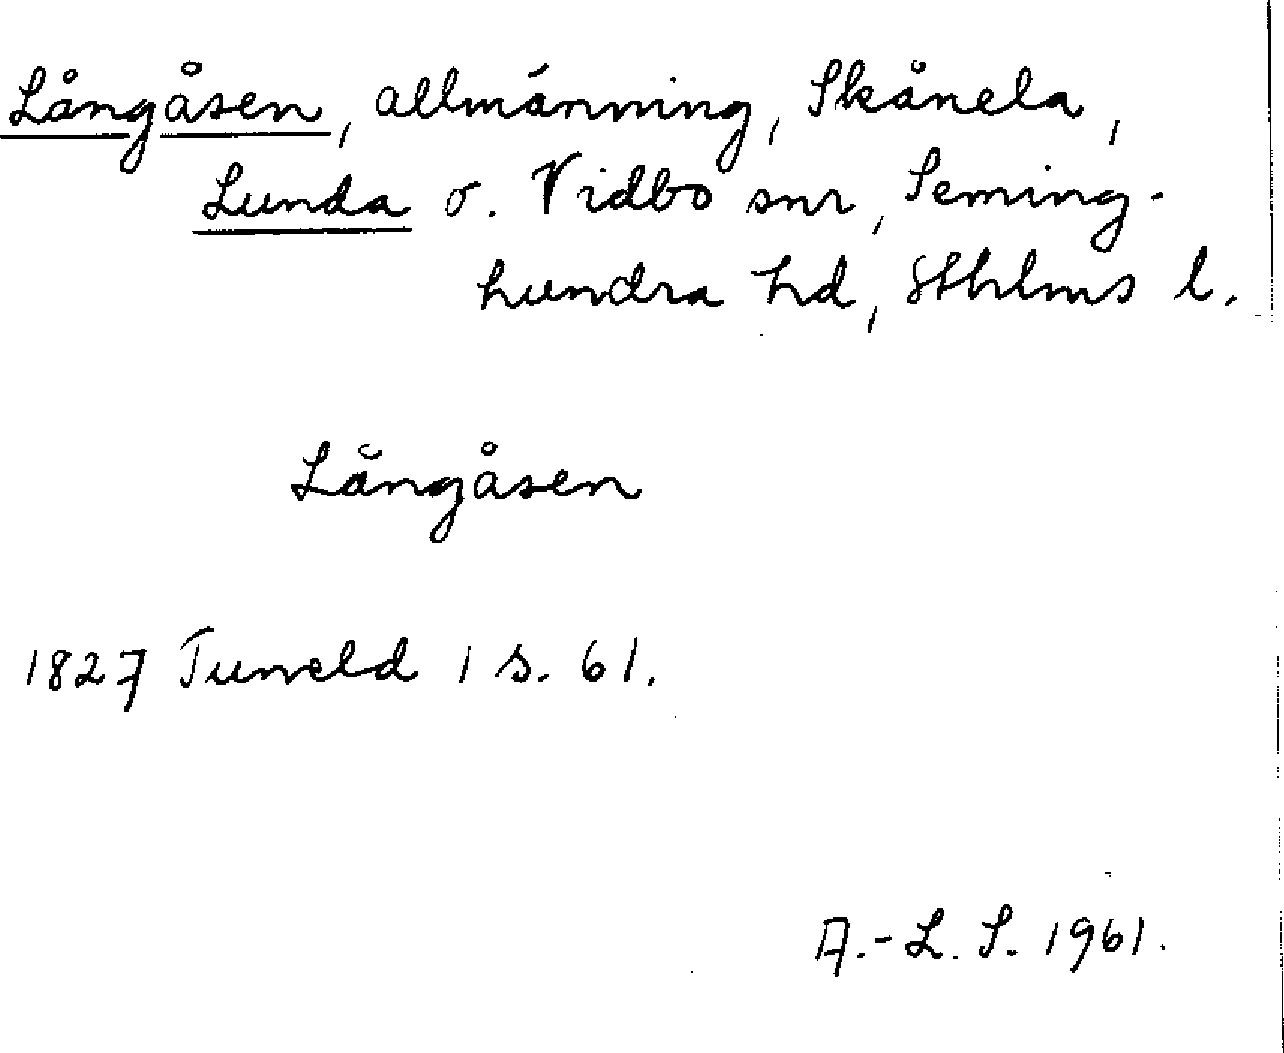 Långåsen, allmänning, Skånela,
Lunda o. Vidbo snr, Seming-
hundra hd, Sthlms l.
Långåsen
1827 Tuneld 1 s. 61.
A.-L. S. 1961.